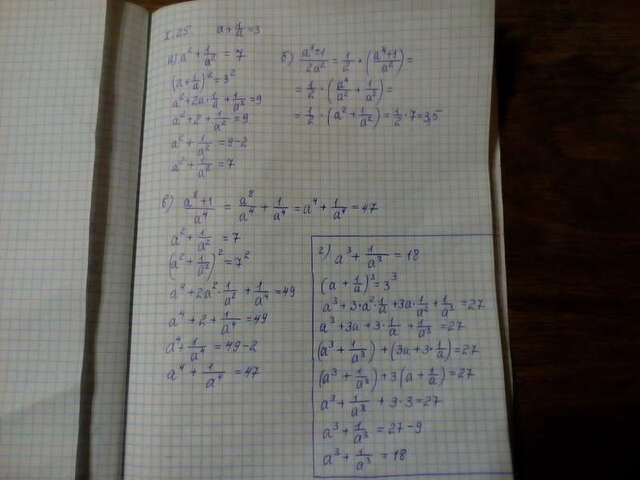 X.25. a+1/a=3
а) a²+1/a²=7
(a+1/a)²=3²
a²+2a·1/a+1/a²=9
a²+2+1/a²=9
a²+1/a²=9-2
a²+1/a²=7
б) (a⁴+1)/2a²=1/2·((a⁴+1)/a²)=
=1/2·(a⁴/a²+1/a²)=
=1/2·(a²+1/a²)=1/2·7=3,5
в) (a⁸+1)/a⁴=a⁸/a⁴+1/a⁴=a⁴+1/a⁴=47
a²+1/a²=7
(a²+1/a²)²=7²
a⁴+2a²·1/a²+1/a⁴=49
a⁴+2+1/a⁴=49
a⁴+1/a⁴=49-2
a⁴+1/a⁴=47
г) a³+1/a³=18
(a+1/a)³=3³
a³+3·a²·1/a+3a·1/a²+1/a³=27
a³+3a+3·1/a+1/a³=27
(a³+1/a³)+(3a+3·1/a)=27
(a³+1/a³)+3(a+1/a)=27
a³+1/a³+3·3=27
a³+1/a³=27-9
a³+1/a³=18